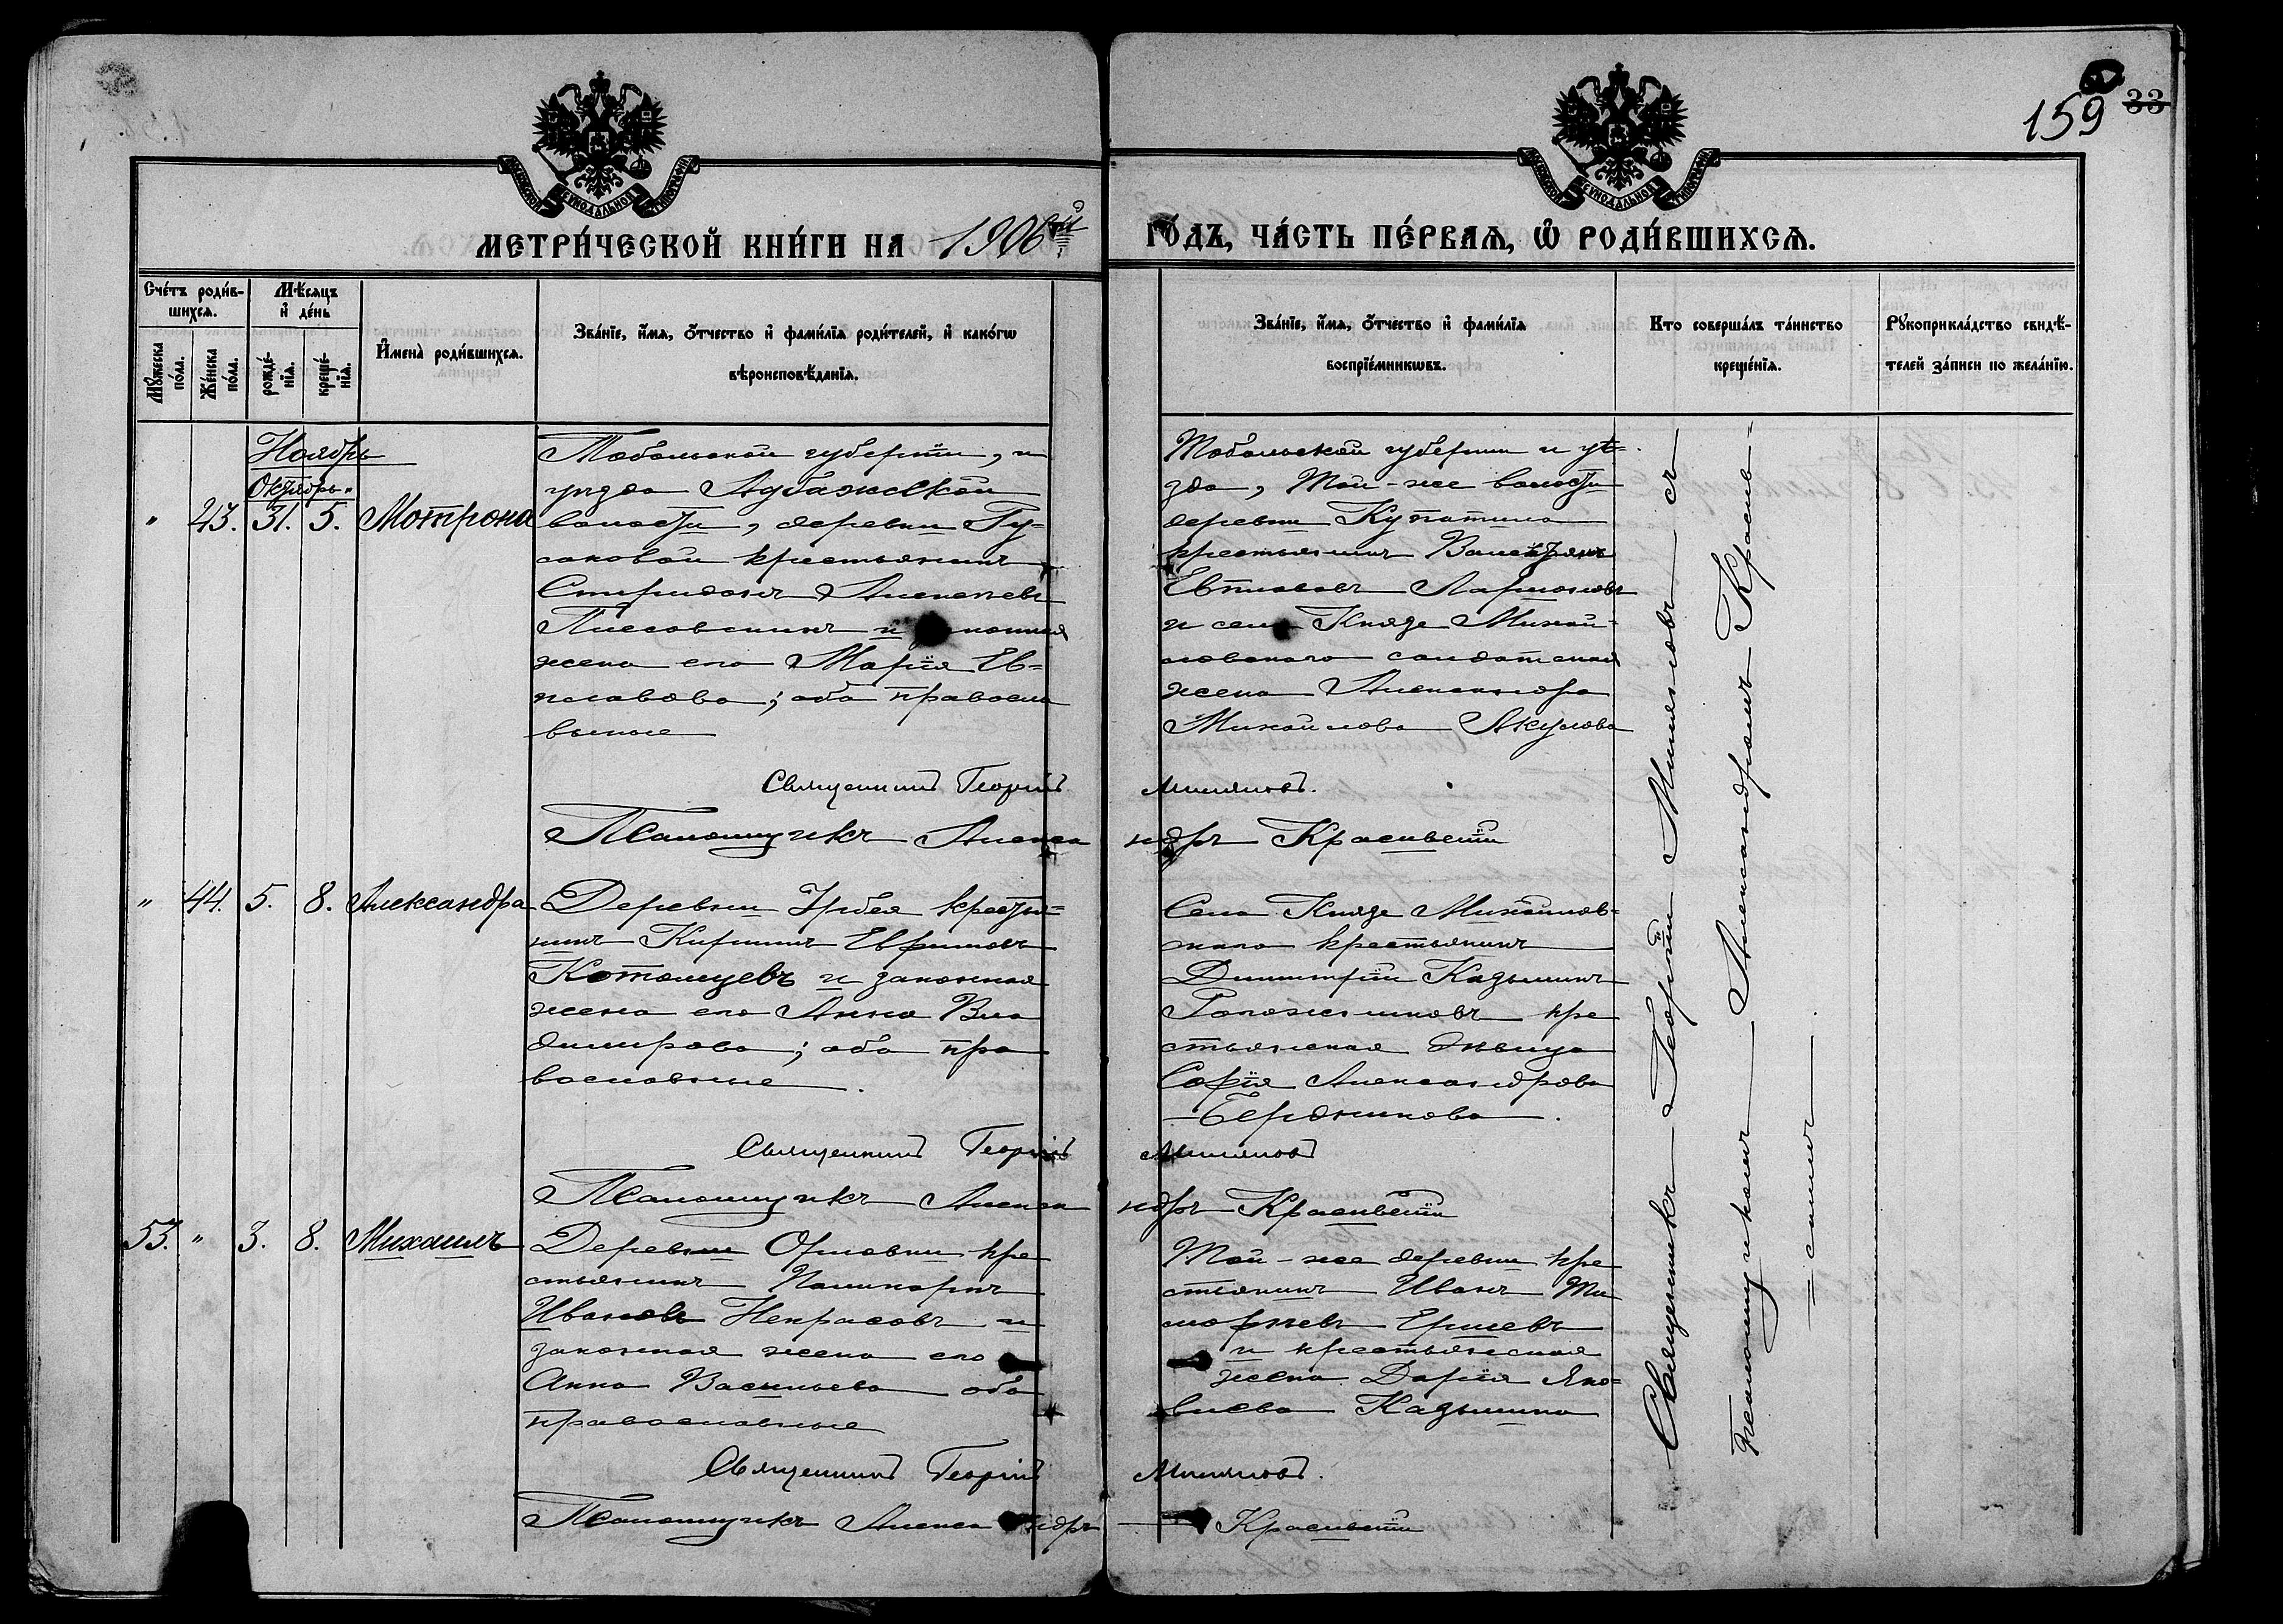 159
33
МЕТРИ́ЧЕСКОЙ КНИ́ГИ НА 1906й
ГО́ДЪ, ЧА́СТЬ ПЕ́РВАЯ, Ѡ҆ РОДИ́ВШИХСЯ.
Сче́тъ роди́в-
шихся.
Мꙋ́жеска
по́ла.
Же́нска
по́ла.
Мѣ́сяцъ
и҆ де́нь
рожде́-
нїя.
креще́-
нїя.
И҆мена̀ роди́вшихся.
Зва́нїе, и҆́мя, ѻ҆́тчество и҆ фамі́лїя роди́телей, и҆ како́гѡ
вѣроисповѣ́данїя.
Зва́нїе, и҆́мя, ѻ҆́тчество и҆ фамі́лїя
воспрїе́мникѡвъ.
Кто соверша́лъ та́инство
креще́нїя.
Рꙋкоприкла́дство свидѣ́-
телей за́писи по жела́нїю.
Ноябрь
Октябрь
" 43. 31. 5. Мотрона
Тобольской губернiи, и
уѣзда Адбажской
волости, деревни Гу-
саковой крестьянинъ
Спиридонъ Алексѣевъ
и законная
жена его Марiя Ев-
; оба правосла
вные
Тобольской губернiи и уѣ-
зда, Той-же волости
деревни
крестьянинъ
Ларiоновъ
и села Князе Михай-
ловскаго солдатская
жена Александра
Михайлова Акулова
Священникъ Георгiй Миляновъ.
Псаломщикъ Александръ Красивскiй
" 44. 5. 8. Александра
Деревни Урбея крестья-
нинъ Кирилъ Ефимовъ
Котомцевъ и законная
жена его Анна Вла
димирова; оба пра
вославные.
Села Князе Михайлов-
скаго крестьянинъ
Димитрiй Казьминъ
кре
стьянская дѣвица
Софiя Александрова
Бердникова.
Священникъ Георгiй Миляновъ
Псаломщикъ Александръ Красивскiй
53. " 3. 8. Михаилъ
Деревни Орловки кре
стьянинъ Поликарпъ
Ивановъ Некрасовъ и
законная жена его
Анна Васильева оба
православные
Той-же деревни кре
стьянинъ Иванъ Ти
мофѣевъ
и крестьянская
жена Дарiя Яко-
влева Казьмина
Священникъ Георгiй Миляновъ.
Псаломщикъ Александръ Красивскiй
Священникъ Георгiй Миляновъ съ
Псаломщикомъ Александромъ Красив-
скимъ